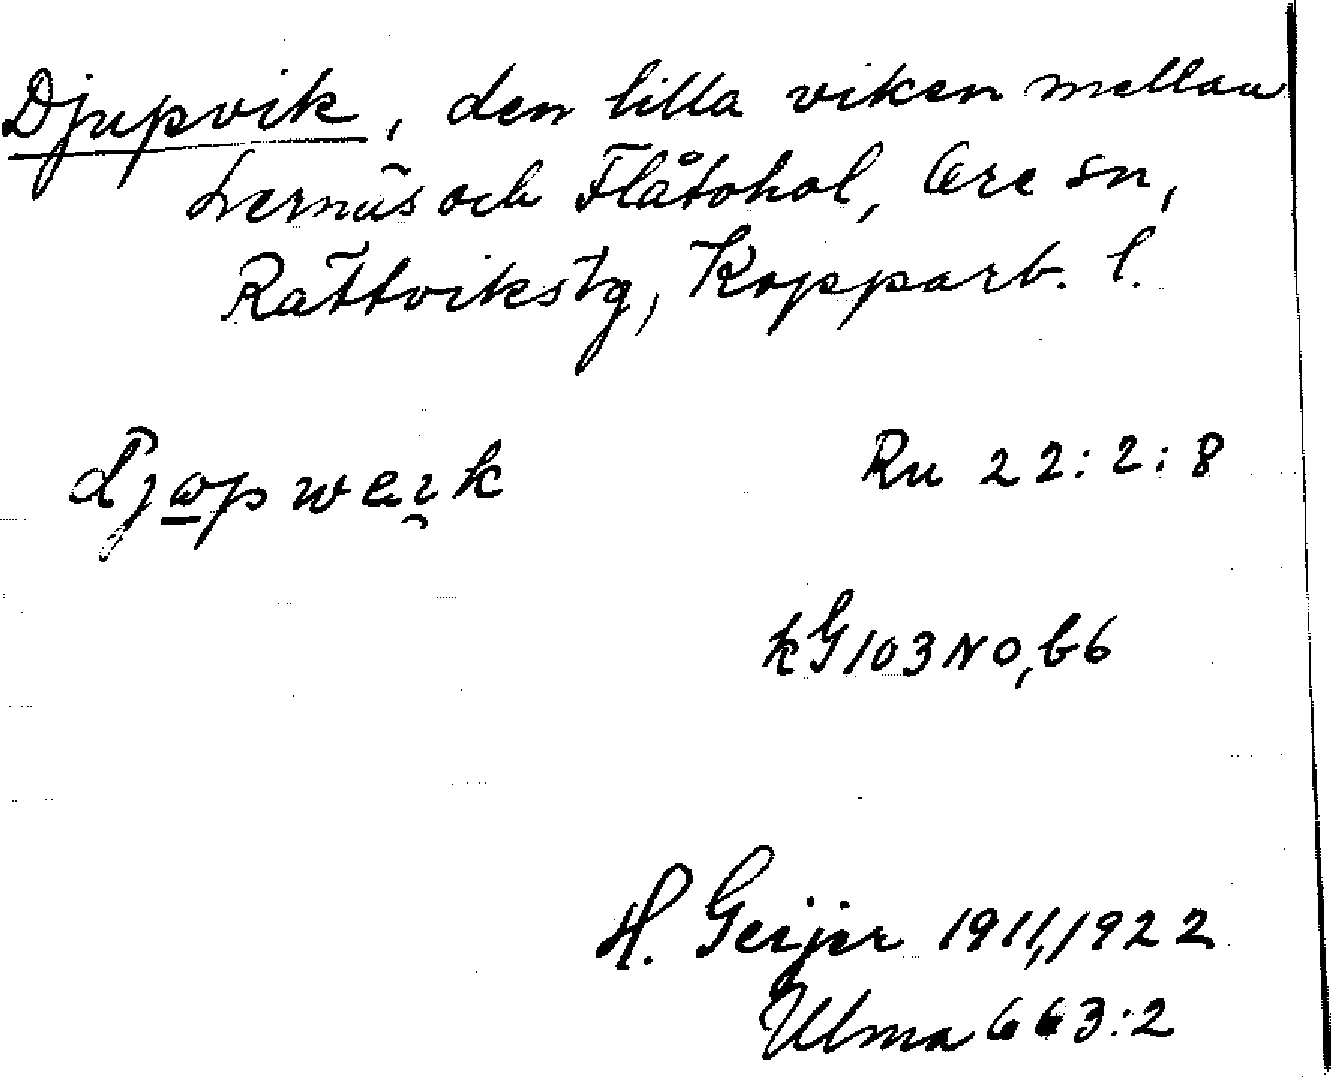 Djupvik, den lilla viken mellan
Lernäs och Flåtohol, Ore sn,
Rättvikstg, Kopparb. l.
Ru 22:2:8
kG103NO,b6
H. Geijer 1911,1922
Ulma 663:2